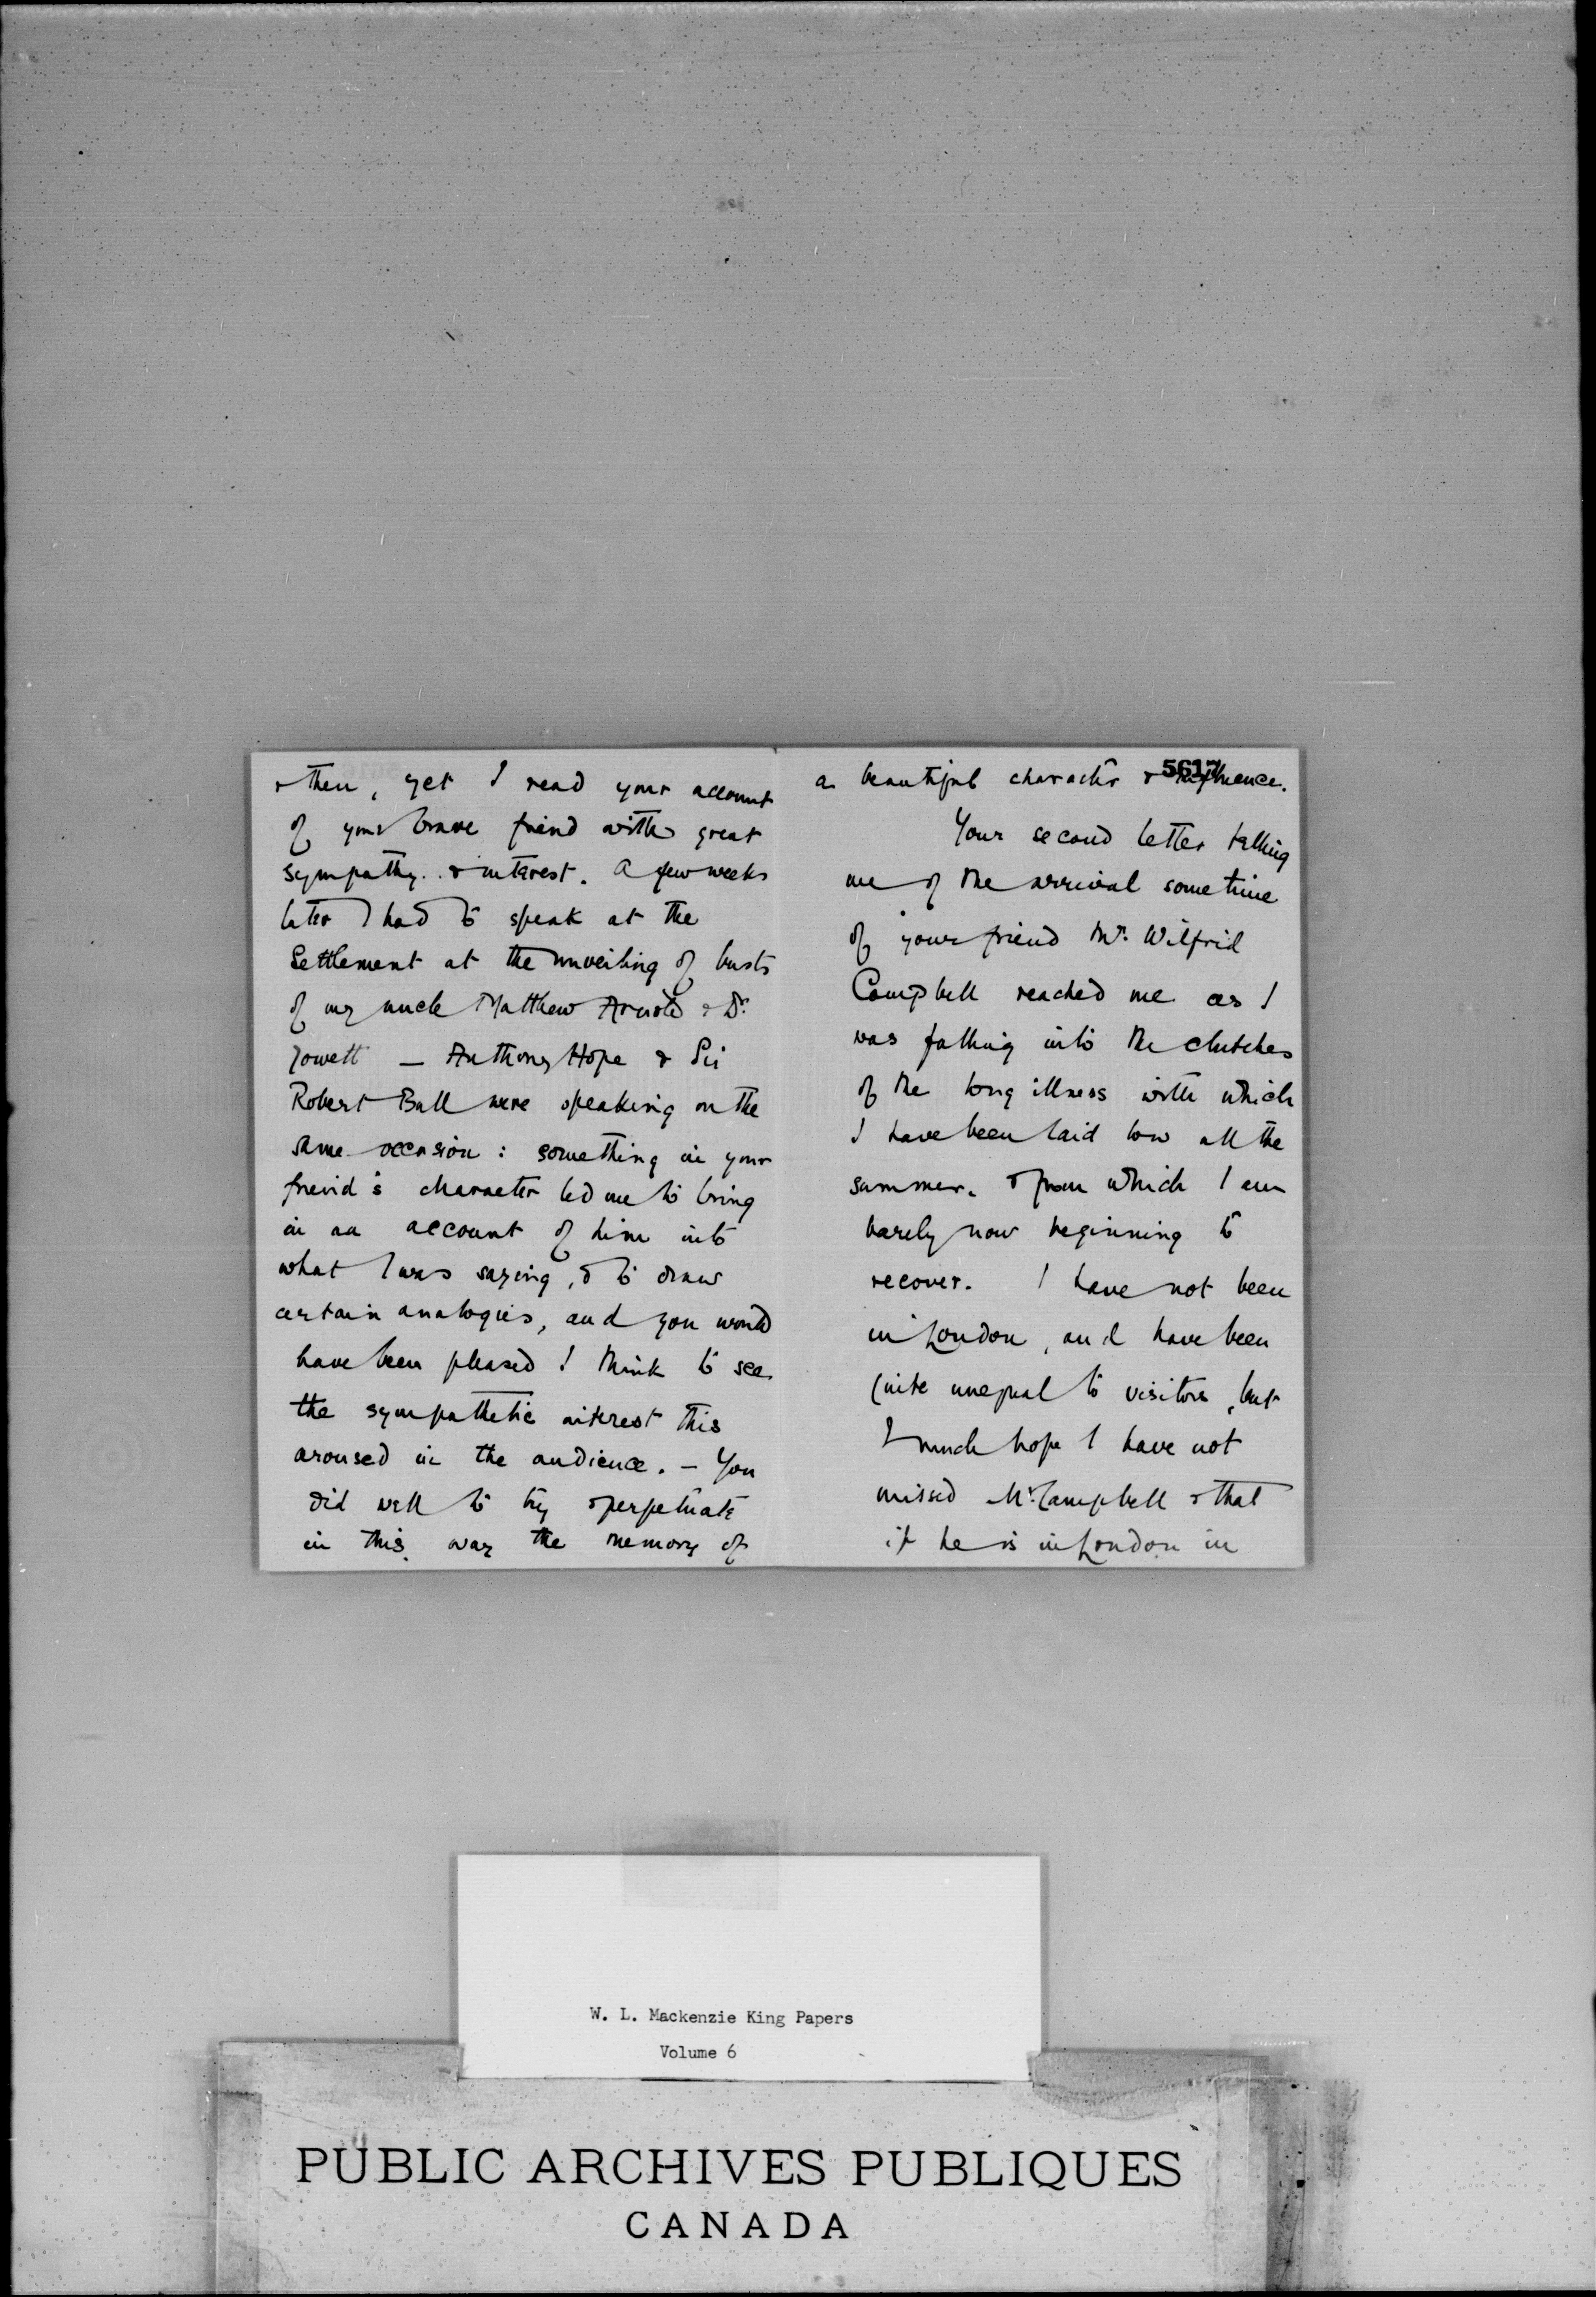 & then, yet I read your account
of your brave friend with great
sympathy & interest. A few weeks
later I had to speak at the
Settlement at the unveiling of busts
of my uncle Matthew Arnold & Dr.
Jowett — Anthony Hope & Sir
Robert Ball were speaking on the
same occasion: something in your
friend's character led me to bring
in an account of him into
what I was saying, & to draw
certain analogies, and you would
have been pleased I think to see
the sympathetic interest this
aroused in the audience. — You
did well to try & perpetuate
in this way the memory of
5617
a beautiful character & influence.
Your second letter telling
me of the arrival sometime
of your friend Mr. Wilfrid
Campbell reached me as I
was falling into the clutches
of the long illness with which
I have been laid low all the
summer. & from which I am
barely now beginning to
recover. I have not been
in London, and have been
quite unequal to visitors, but
I much hope I have not
missed Mr. Campbell & that
if he is in London in
W. L. Mackenzie King Papers
Volume 6
PUBLIC ARCHIVES PUBLIQUES
CANADA